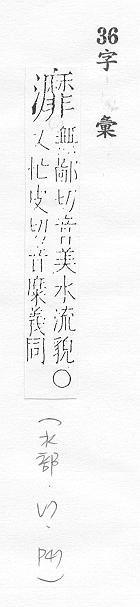 36字彙
無鄙切音美水流貌○
又忙皮切音糜義同
(水部